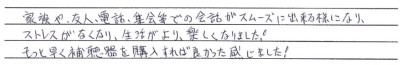 家族や、友人、電話、集会等での会話がスムーズに出来る様になり、
ストレスがなくなり、生活がより、楽しくなりました!
もっと早く補聴器を購入すれば良かった感じました!